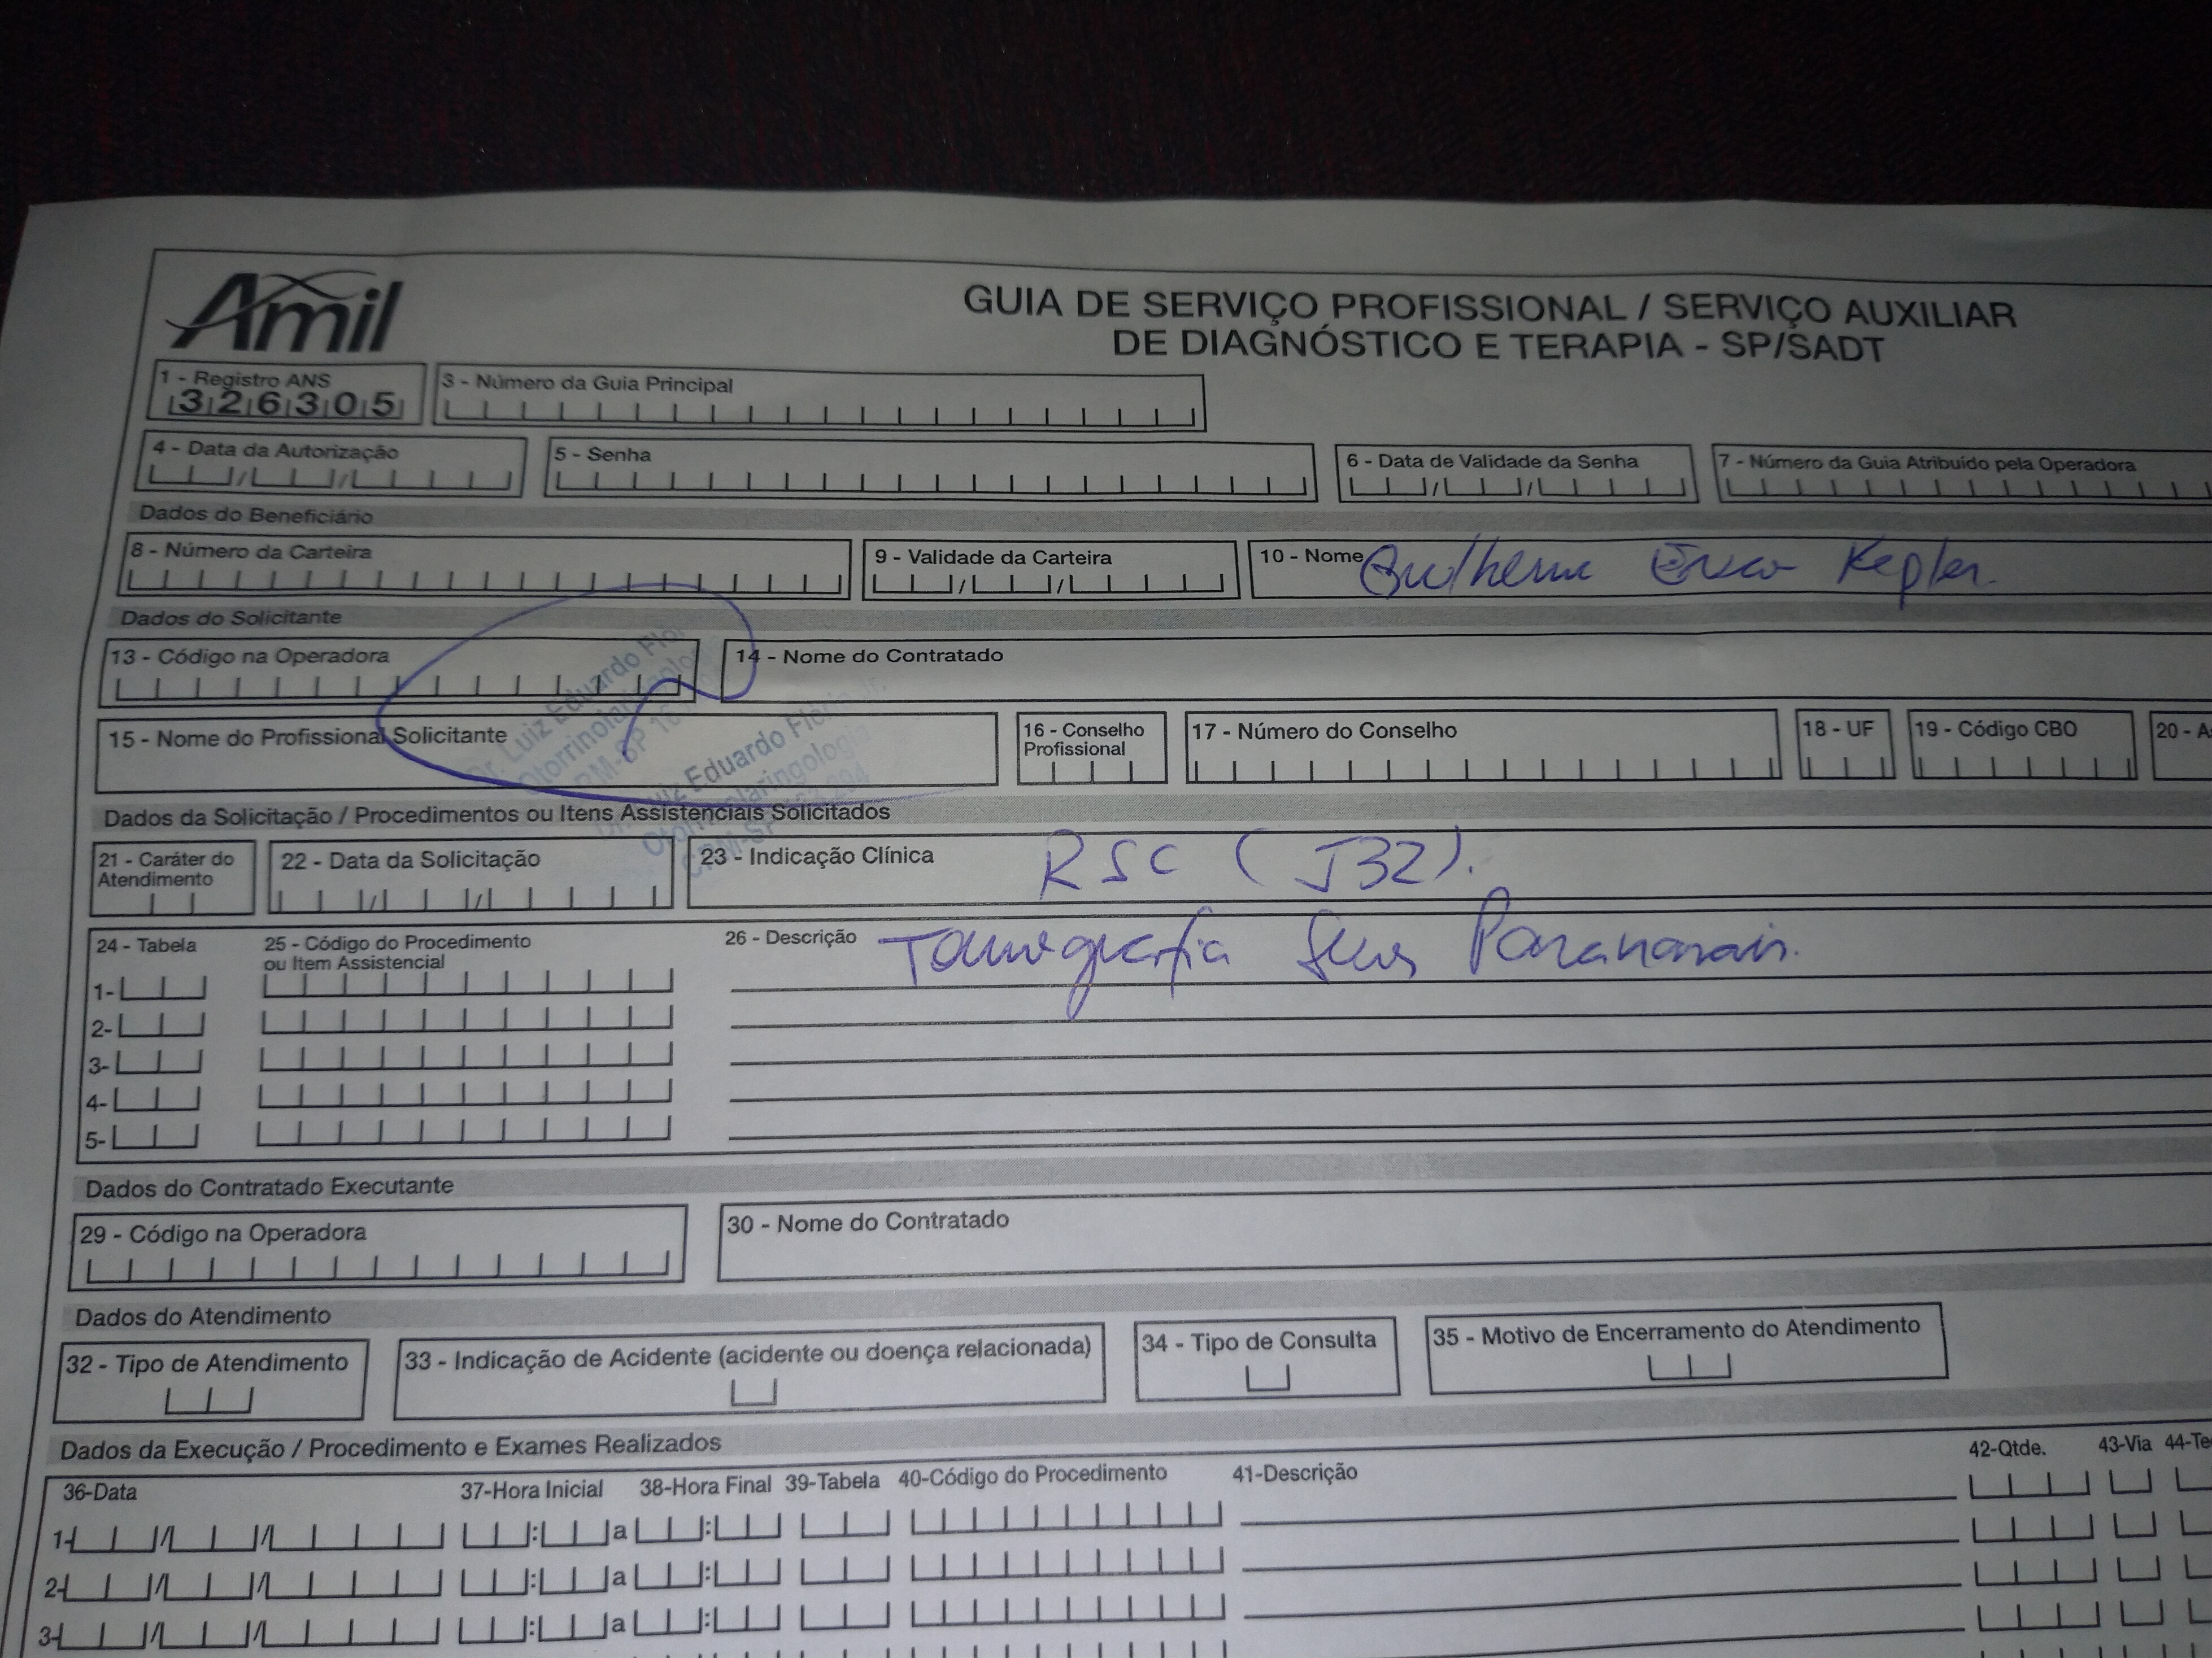 Amil
GUIA DE SERVIÇO PROFISSIONAL / SERVIÇO AUXILIAR
DE DIAGNÓSTICO E TERAPIA - SP/SADT
1 - Registro ANS
326305
3 - Número da Guia Principal
4 - Data da Autorização
5 - Senha
6 - Data de Validade da Senha
7 - Número da Guia Atribuído pela Operadora
Dados do Beneficiário
8 - Número da Carteira
9 - Validade da Carteira
10 - Nome Guilherme Kepler
Dados do Solicitante
13 - Código na Operadora
14 - Nome do Contratado
15 - Nome do Profissional Solicitante
Dr. Luiz Eduardo
CRM-SP
Eduardo
16 - Conselho
Profissional
17 - Número do Conselho
18 - UF
19 - Código CBO
20 -
Dados da Solicitação / Procedimentos ou Itens Assistenciais Solicitados
21 - Caráter do
Atendimento
22 - Data da Solicitação
23 - Indicação Clínica RSC (J32).
24 - Tabela
25 - Código do Procedimento
ou Item Assistencial
26 - Descrição Tomografia Seios Paranasais.
1-
2-
3-
4-
5-
Dados do Contratado Executante
29 - Código na Operadora
30 - Nome do Contratado
Dados do Atendimento
32 - Tipo de Atendimento
33 - Indicação de Acidente (acidente ou doença relacionada)
34 - Tipo de Consulta
35 - Motivo de Encerramento do Atendimento
Dados da Execução / Procedimento e Exames Realizados
36-Data
37-Hora Inicial
38-Hora Final
39-Tabela
40-Código do Procedimento
41-Descrição
42-Qtde.
43-Via
44-Te
1- / / : a :
2- / / : a :
3- / / : a :